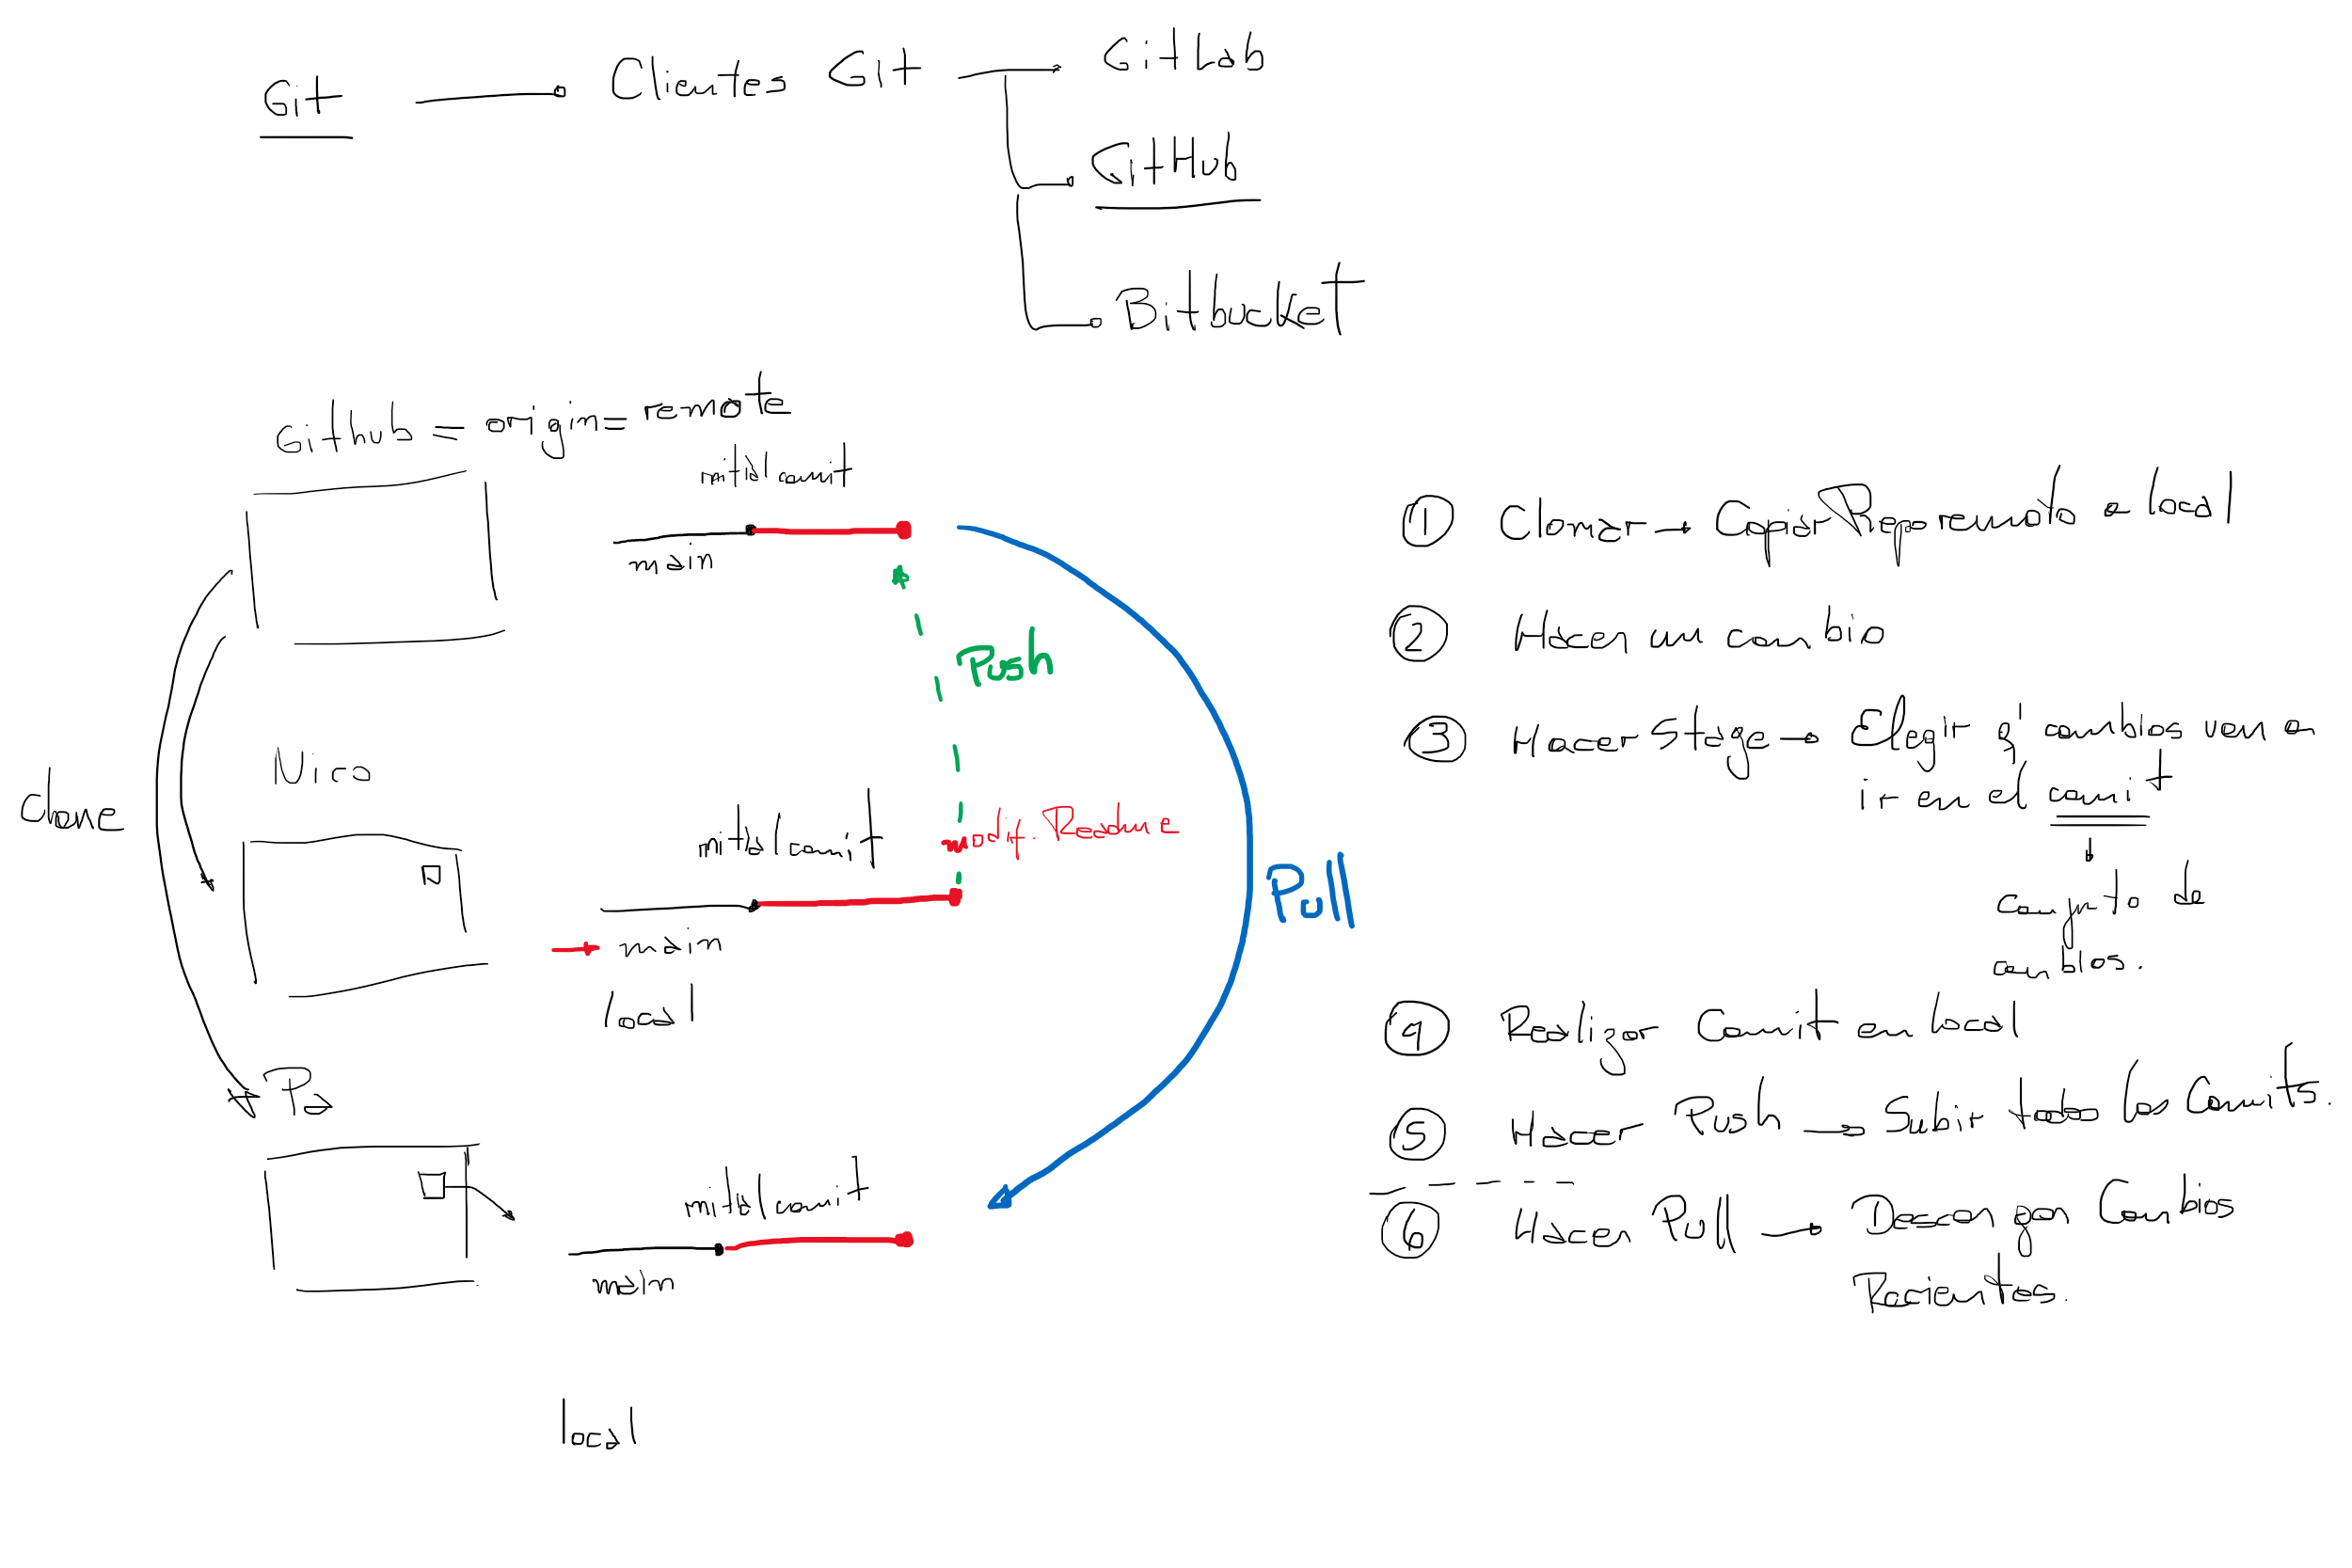 Git
Clientes Git
GitLab
GitHub
Bitbucket
Github = origin = remote
initial comit
main
Push
clone
Nico
initial comit
modif. Readme
main
local
Pull
Pa
initial comit
main
local
① Clonar → Copiar Repo remoto a local
② Hacer un cambio
③ Hacer Stage → Elegir q' cambios van a
ir en el comit
conjunto de
cambios.
④ Realizar Comit en local
⑤ Hacer Push → Subir todos los Comits.
⑥ Hacer Pull → Descargar Cambios
Recientes.